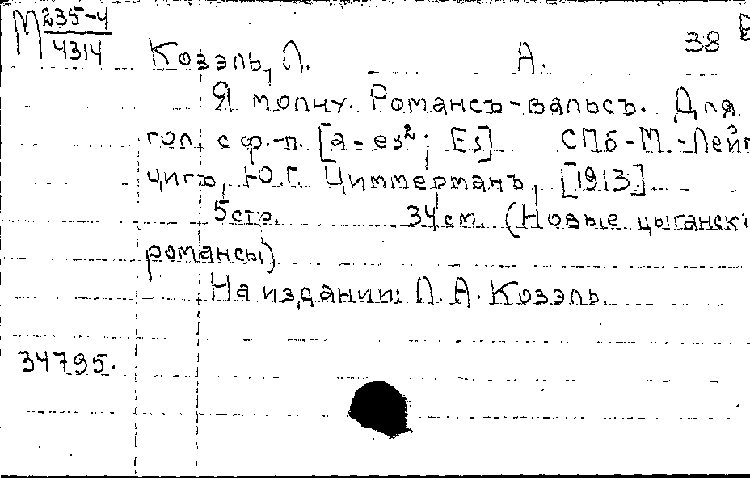 М 235-4
4314
38
Козэль, Л. А.
Я молчу. Романсъ-вальсъ. Для
гол. с ф.-п. [a-es²; Es] СПб-М.-Лейп
цигъ, Ю.Г. Циммерманъ, [1913]
5 стр. 34 см. (Новые цыганск
романсы)
На издании: Л. А. Козэль.
34795.